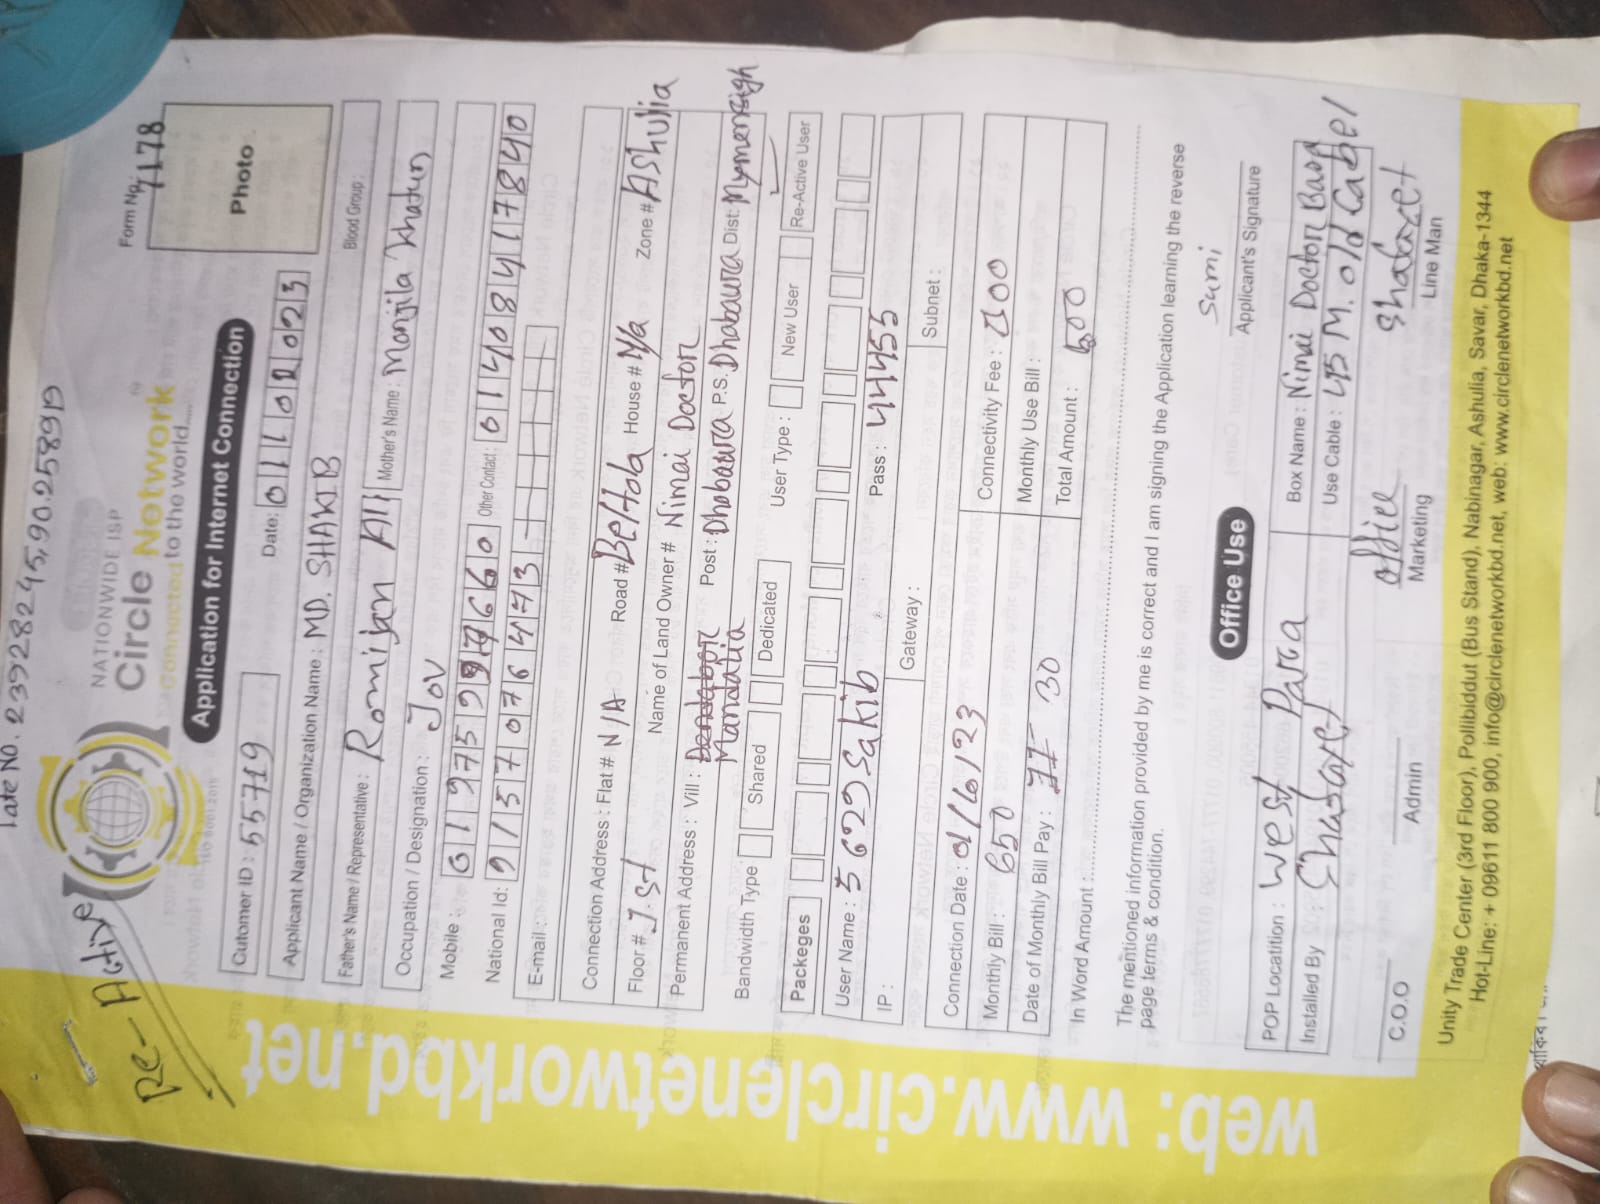 Late NO. 2392824590.2589D
Re-Active
NATIONWIDE ISP
Circle Network
Connected to the world.....
Form No: 7178
Photo
Application for Internet Connection
Cutomer ID : 55719
Date: 01 10 2023
Applicant Name / Organization Name : MD. SHAKIB
Father's Name / Representative : Romijan Ali Mother's Name : Monjila Khatun Blood Group :
Occupation / Designation : Jov
Mobile : Other Contact : 01408417840
National Id: 9157076443
E-mail :
Connection Address : Flat # N/A Road # Beltola House # N/a Zone # Ashulia
Floor # 1.st Name of Land Owner # Nimai Doctor
Permanent Address : Vill : Mandalia Post : Dhobaura P.S. Dhabaura Dist: Mymensigh
Bandwidth Type Shared Dedicated User Type : New User Re-Active User
Packeges
User Name : 5629sakib Pass : 44455
IP : Gateway : Subnet :
Connection Date : 01/6/23 Connectivity Fee :
Monthly Bill : 650 Monthly Use Bill :
Date of Monthly Bill Pay : 30 Total Amount :
In Word Amount :
The mentioned information provided by me is correct and I am signing the Application learning the reverse
page terms & condition.
Sumi
Applicant's Signature
Office Use
POP Locatition : West Para Box Name : Nimai Doctor Basa
Installed By : Shadaxet Use Cable : 45 M. old Cabel
offie Shadaxet
C.O.O Admin Marketing Line Man
Unity Trade Center (3rd Floor), Pollibiddut (Bus Stand), Nabinagar, Ashulia, Savar, Dhaka-1344
Hot-Line: + 09611 800 900, info@circlenetworkbd.net, web: www.circlenetworkbd.net
web: www.circlenetworkbd.net